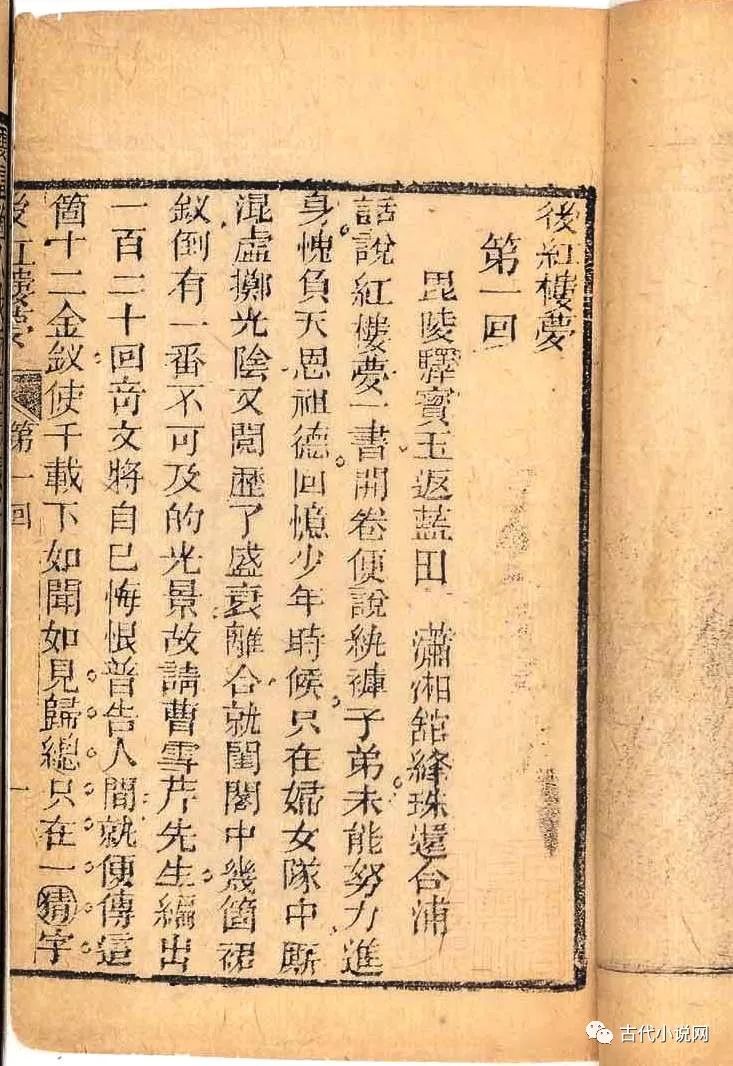 後紅樓夢
第一回
毘陵驛寶玉返藍田 瀟湘舘絳珠還合浦
話說紅樓夢一書開卷便說紈褲子弟未能努力進
身愧負天恩祖德回憶少年時候只在婦女隊中厮
混虛擲光陰又閱歷了盛衰離合就閨閣中幾箇裙
釵倒有一番不可及的光景故請曹雪芹先生編出
一百二十回竒文將自己悔恨普告人間就便傳這
箇十二金釵使千載下如聞如見歸總只在一猜字
後紅樓夢 第一回 一
古代小说网